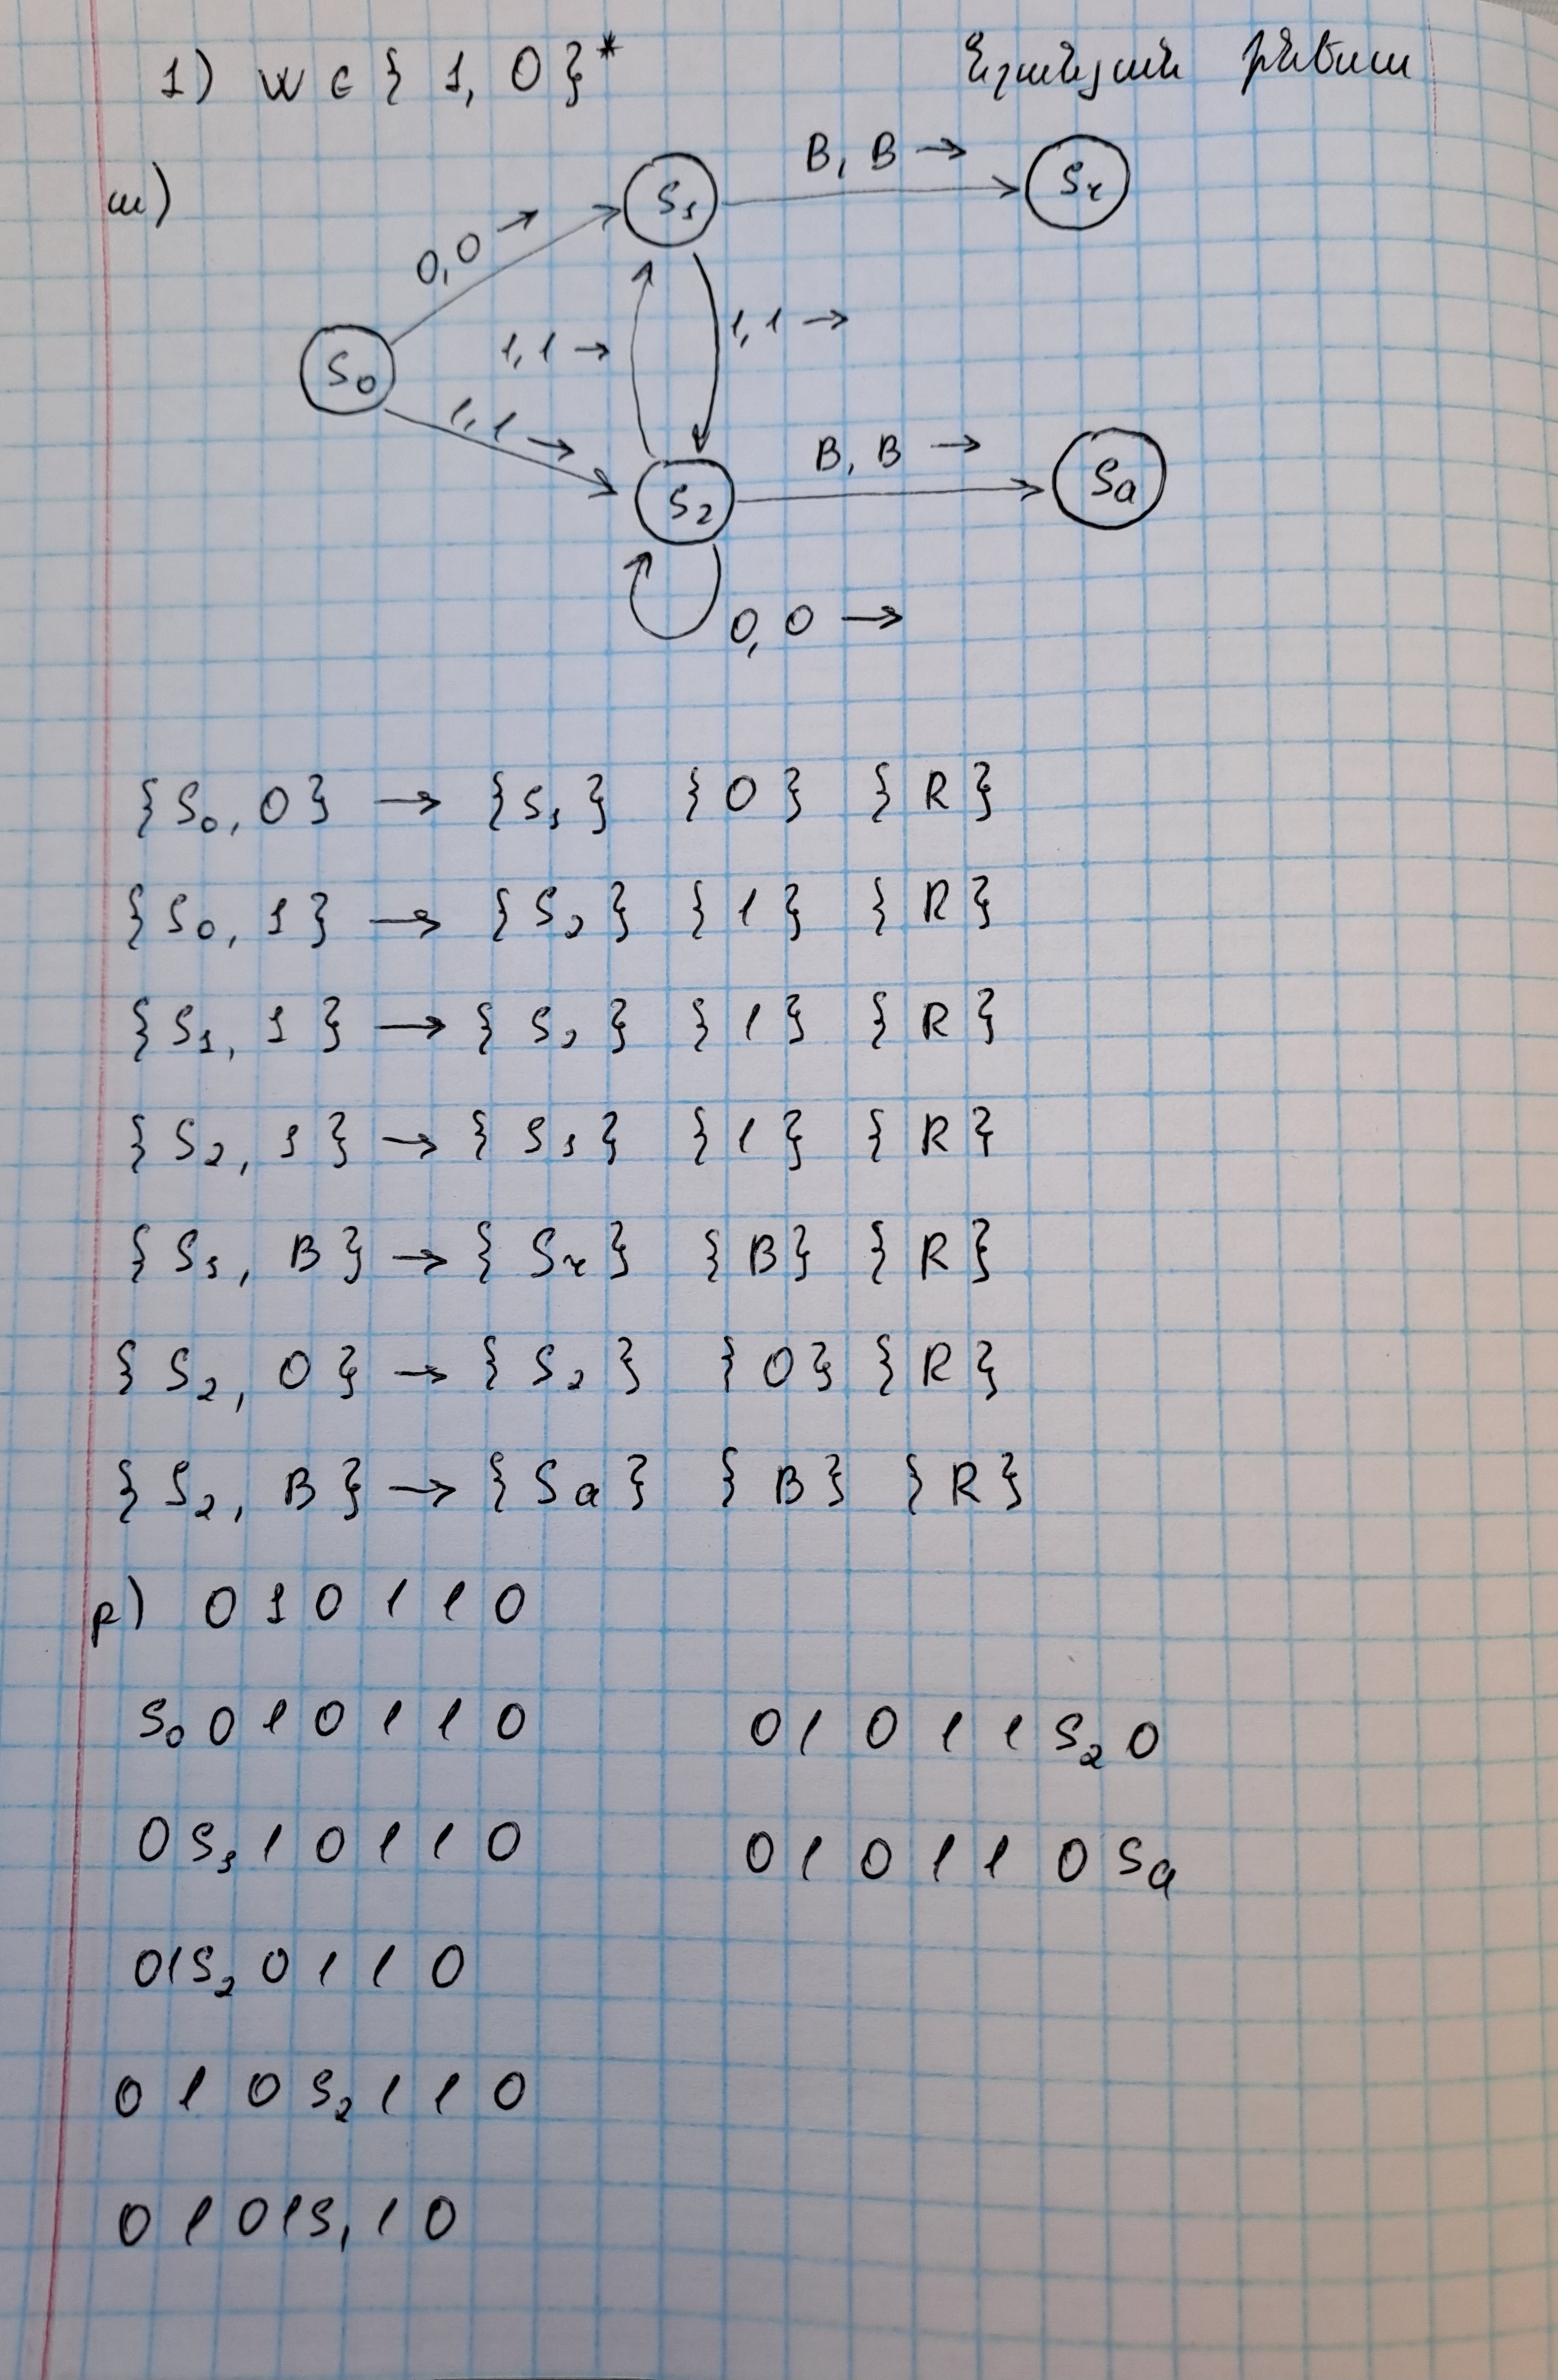 1) W ∈ { 1, 0 }*
ա)
0,0 →
1,1 →
S₀
S₁
B, B →
Sᵣ
1,1 →
1,1 →
S₂
B, B →
Sₐ
0,0 →
{ S₀, 0 } → { S₁ } { 0 } { R }
{ S₀, 1 } → { S₂ } { 1 } { R }
{ S₁, 1 } → { S₂ } { 1 } { R }
{ S₂, 1 } → { S₁ } { 1 } { R }
{ S₁, B } → { Sᵣ } { B } { R }
{ S₂, 0 } → { S₂ } { 0 } { R }
{ S₂, B } → { Sₐ } { B } { R }
բ) 0 1 0 1 1 0
S₀ 0 1 0 1 1 0
0 S₁ 1 0 1 1 0
0 1 S₂ 0 1 1 0
0 1 0 S₂ 1 1 0
0 1 0 1 S₁ 1 0
0 1 0 1 1 S₂ 0
0 1 0 1 1 0 Sₐ